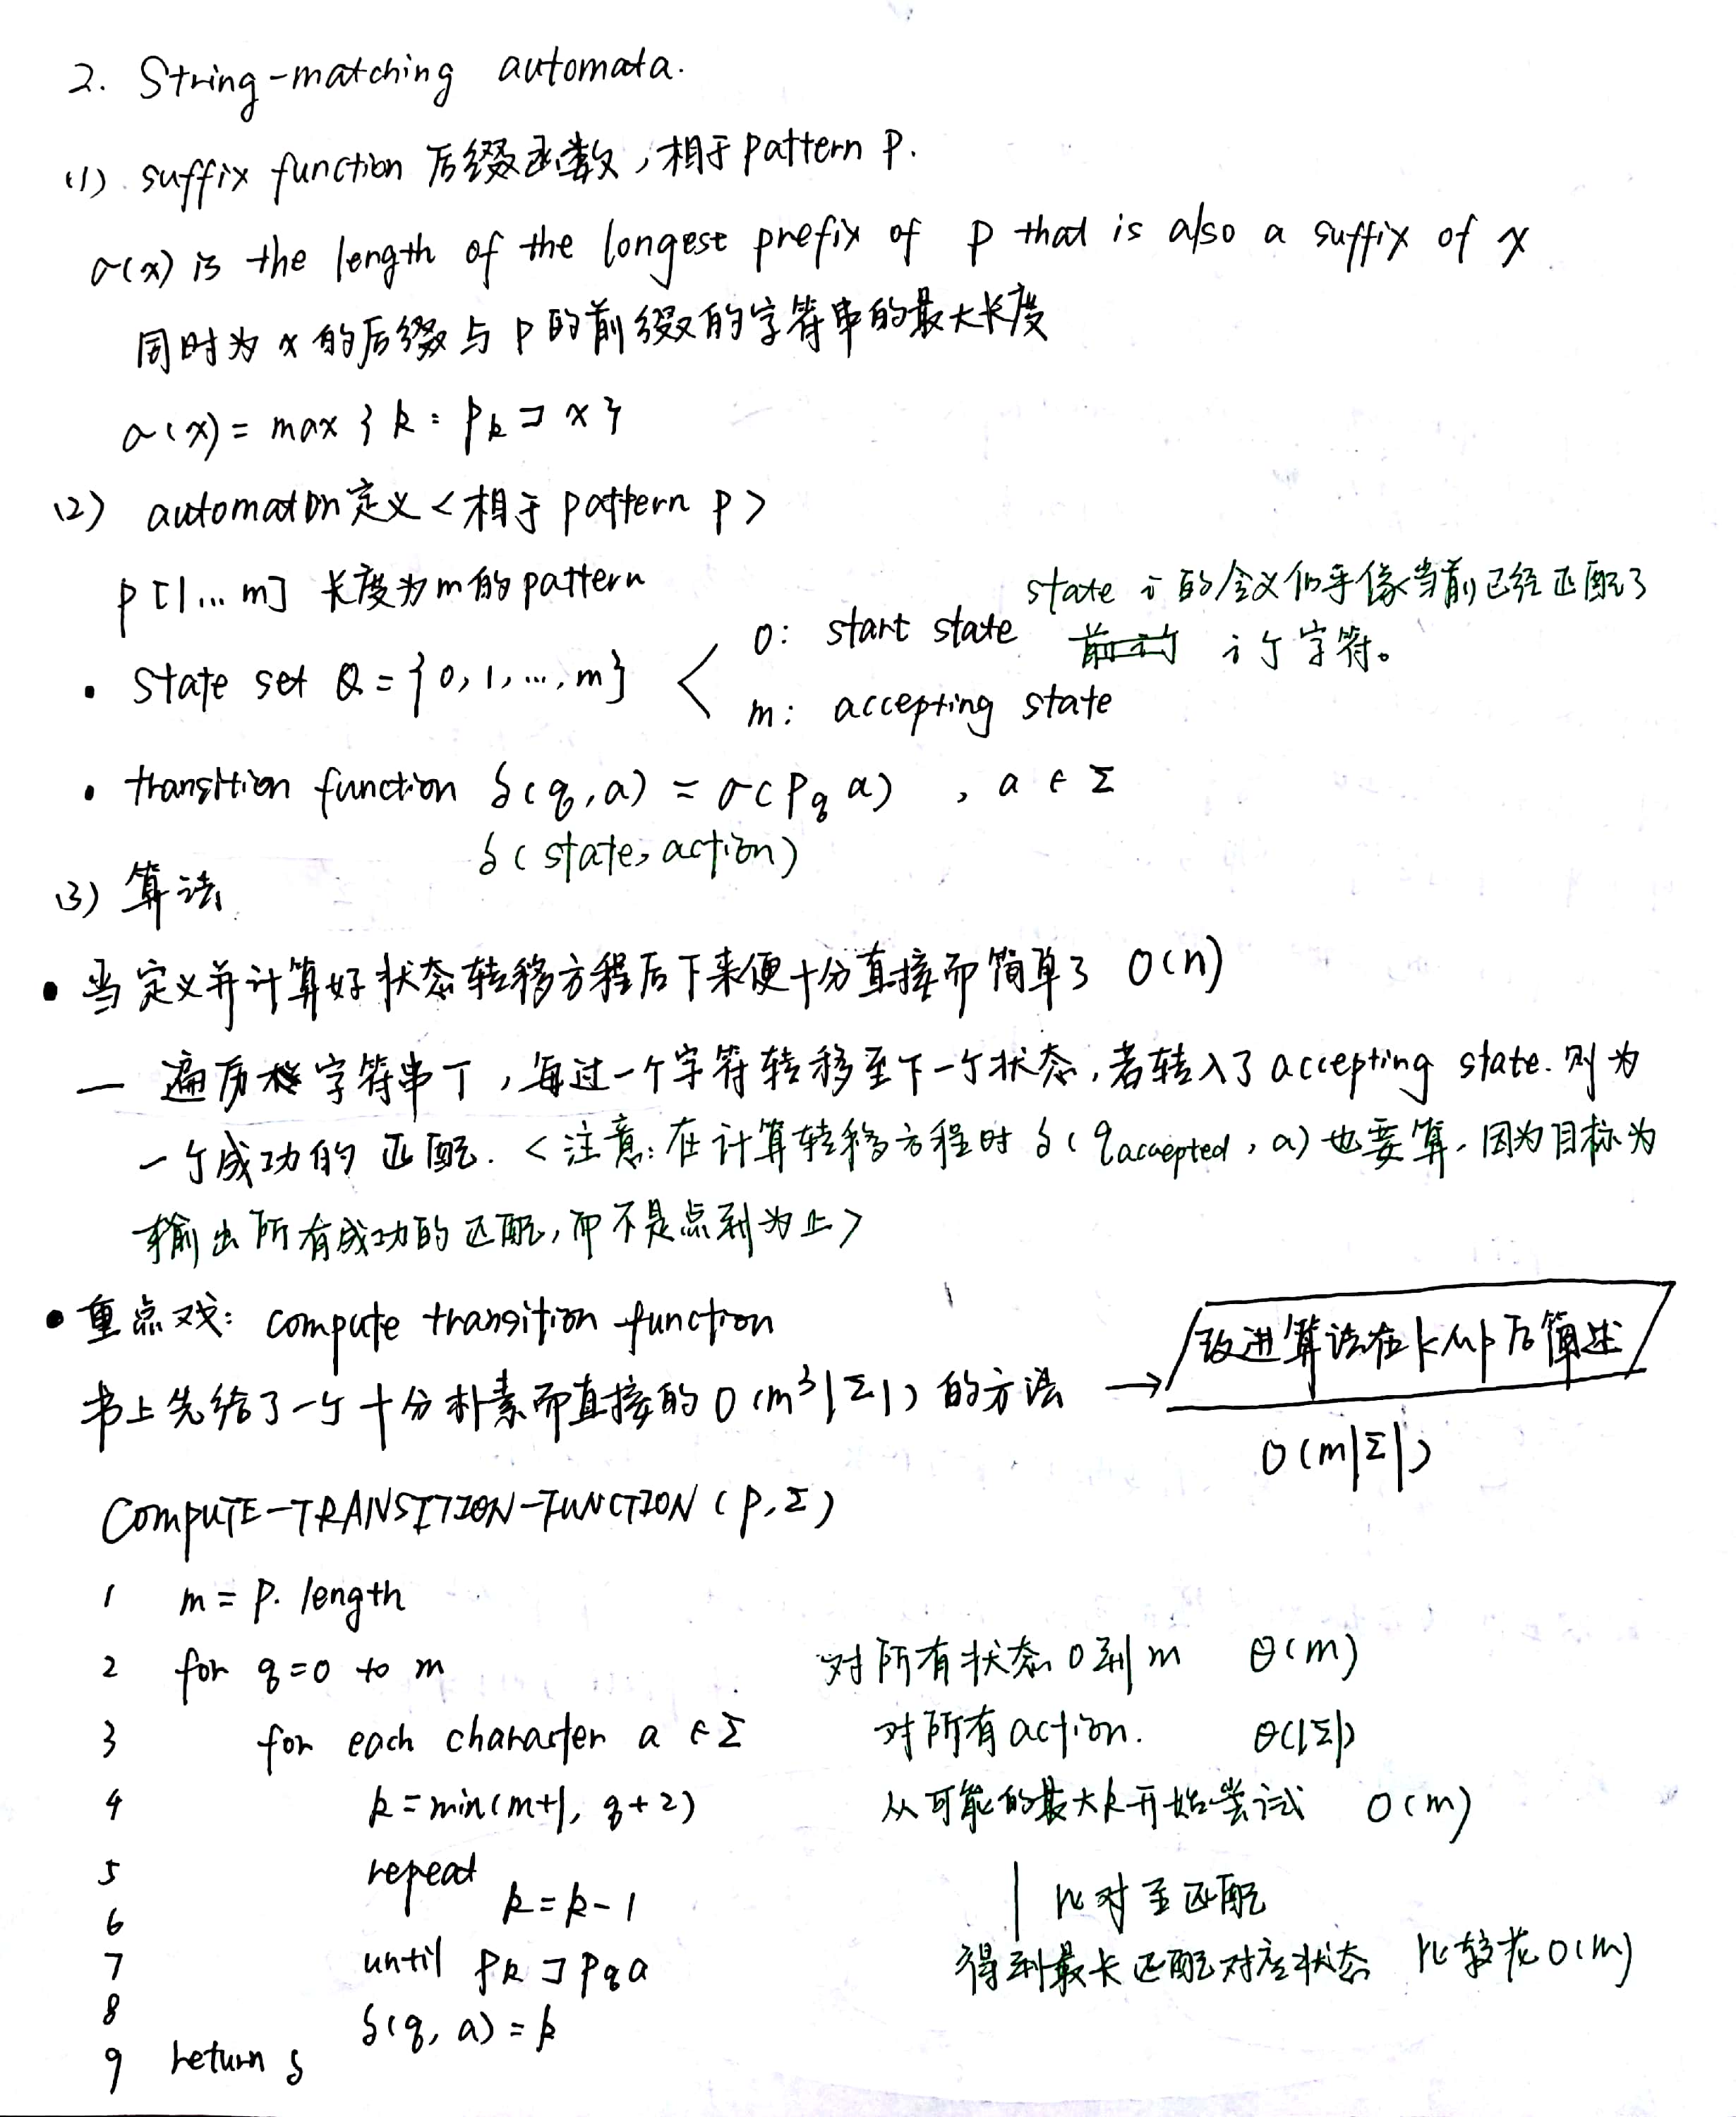 2. String-matching automata.
(1) suffix function 后缀函数，相于pattern P.
σ(x) is the length of the longest prefix of P that is also a suffix of x
同时为x的后缀与P的前缀的字符串的最大长度
σ(x) = max {k : Pk ⊐ x}
(2) automaton定义<相于pattern P>
P[1...m] 长度为m的pattern
state i 的含义似乎像当前已经匹配了
i个字符。
• State set Q = {0, 1, ..., m} <
0: start state
m: accepting state
• transition function δ(q, a) = σ(Pq a) , a ∈ Σ
δ(state, action)
(3) 算法
• 当定义并计算好状态转移方程后下来便十分直接而简单了 O(n)
— 遍历字符串T，每过一个字符转移至下一个状态，若转入了accepting state. 则为
一个成功的匹配. <注意: 在计算转移方程时 δ(qaccepted, a) 也要算，因为目标为
输出所有成功的匹配，而不是点到为止>
• 重点戏: compute transition function
书上先给了一个十分朴素而直接的 O(m³|Σ|) 的方法 →
改进算法在KMP后简述
O(m|Σ|)
COMPUTE-TRANSITION-FUNCTION (P, Σ)
1 m = P. length
2 for q=0 to m 对所有状态0到m Θ(m)
3 for each character a ∈ Σ 对所有action. Θ(|Σ|)
4 k = min(m+1, q+2) 从可能的最大k开始尝试 O(m)
5 repeat
6 k = k-1 | 比对至匹配
7 until Pk ⊐ Pqa 得到最长匹配对应状态 比较花O(m)
8 δ(q, a) = k
9 return δ